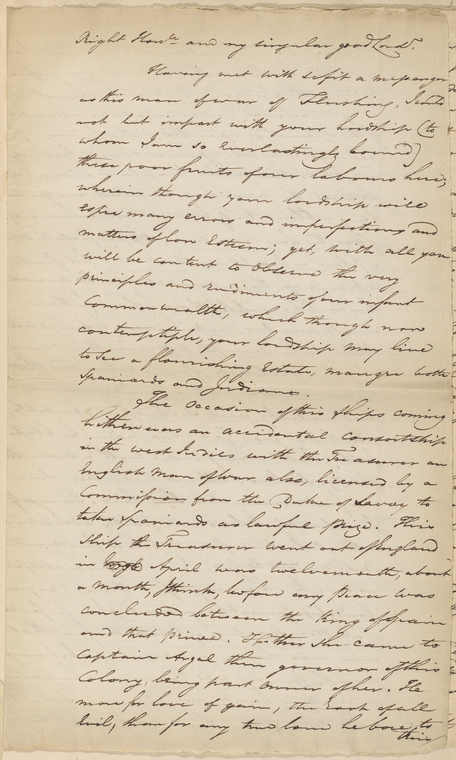 Right Hon:ble and my singular good Lord.
Having met with so fit a messenger
as this man of war of Flushing, I could
not but impart with your lordship (to
whom I am so everlastingly bound)
these poor fruits of our labours here,
wherein though your lordship will
espie many errors and imperfections and
matters of low Esteem; yet, with all you
will be content to observe the very
principles and rudiments of our infant
Commonwealth, which though now
contemptible, your lordship may live
to see a flourishing Estate, maugre both
Spaniards and Indians.
The occasion of this ships coming
hither was an accidental consortship
in the West Indies with the Treasurer an
English man of war also, licensed by a
Commission from the Duke of Savoy to
take Spaniards as lawful prize. This
ship the Treasurer went out of England
in April was twelvemonth, about
a month, I think, before any peace was
concluded between the King of Spain
and that prince. Hither she came to
Captain Argal then governor of this
Colony, being part owner of her. He
more for love of gain, the root of all
Evil, than for any true love he bore, to
this